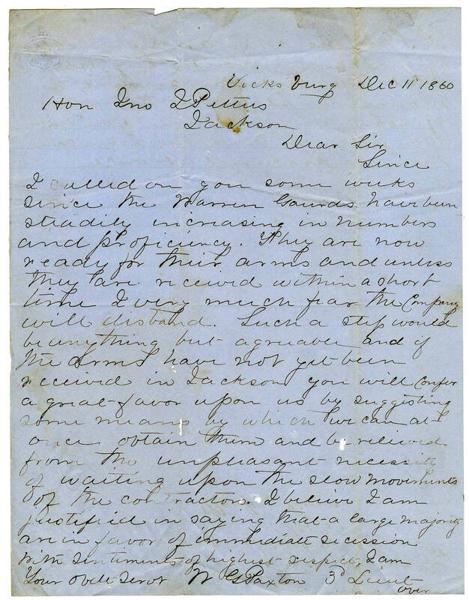 Vicksburg Dec 11 1860
Hon Jno J Pettus
Jackson
Dear Sir
Since
I called on you some weeks
since the Warren Gaurds have been
steadily increasing in numbers
and proficiency. They are now
ready for their arms and unless
they are received within a short
time I very much fear the Company
will disband. Such a step would
be anything but agreeable and if
the arms have not yet been
received in Jackson you will confer
a great favor upon us by suggesting
some means by which we can at
once obtain them and be relieved
from the unpleasant necessity
of waiting upon the slow movements
of the contractor. I believe I am
justified in saying that a large majority
are in favor of immediate secession
With sentiments of highest respect, I am
Your obdt servt W G Paxton 3d Lieut
over